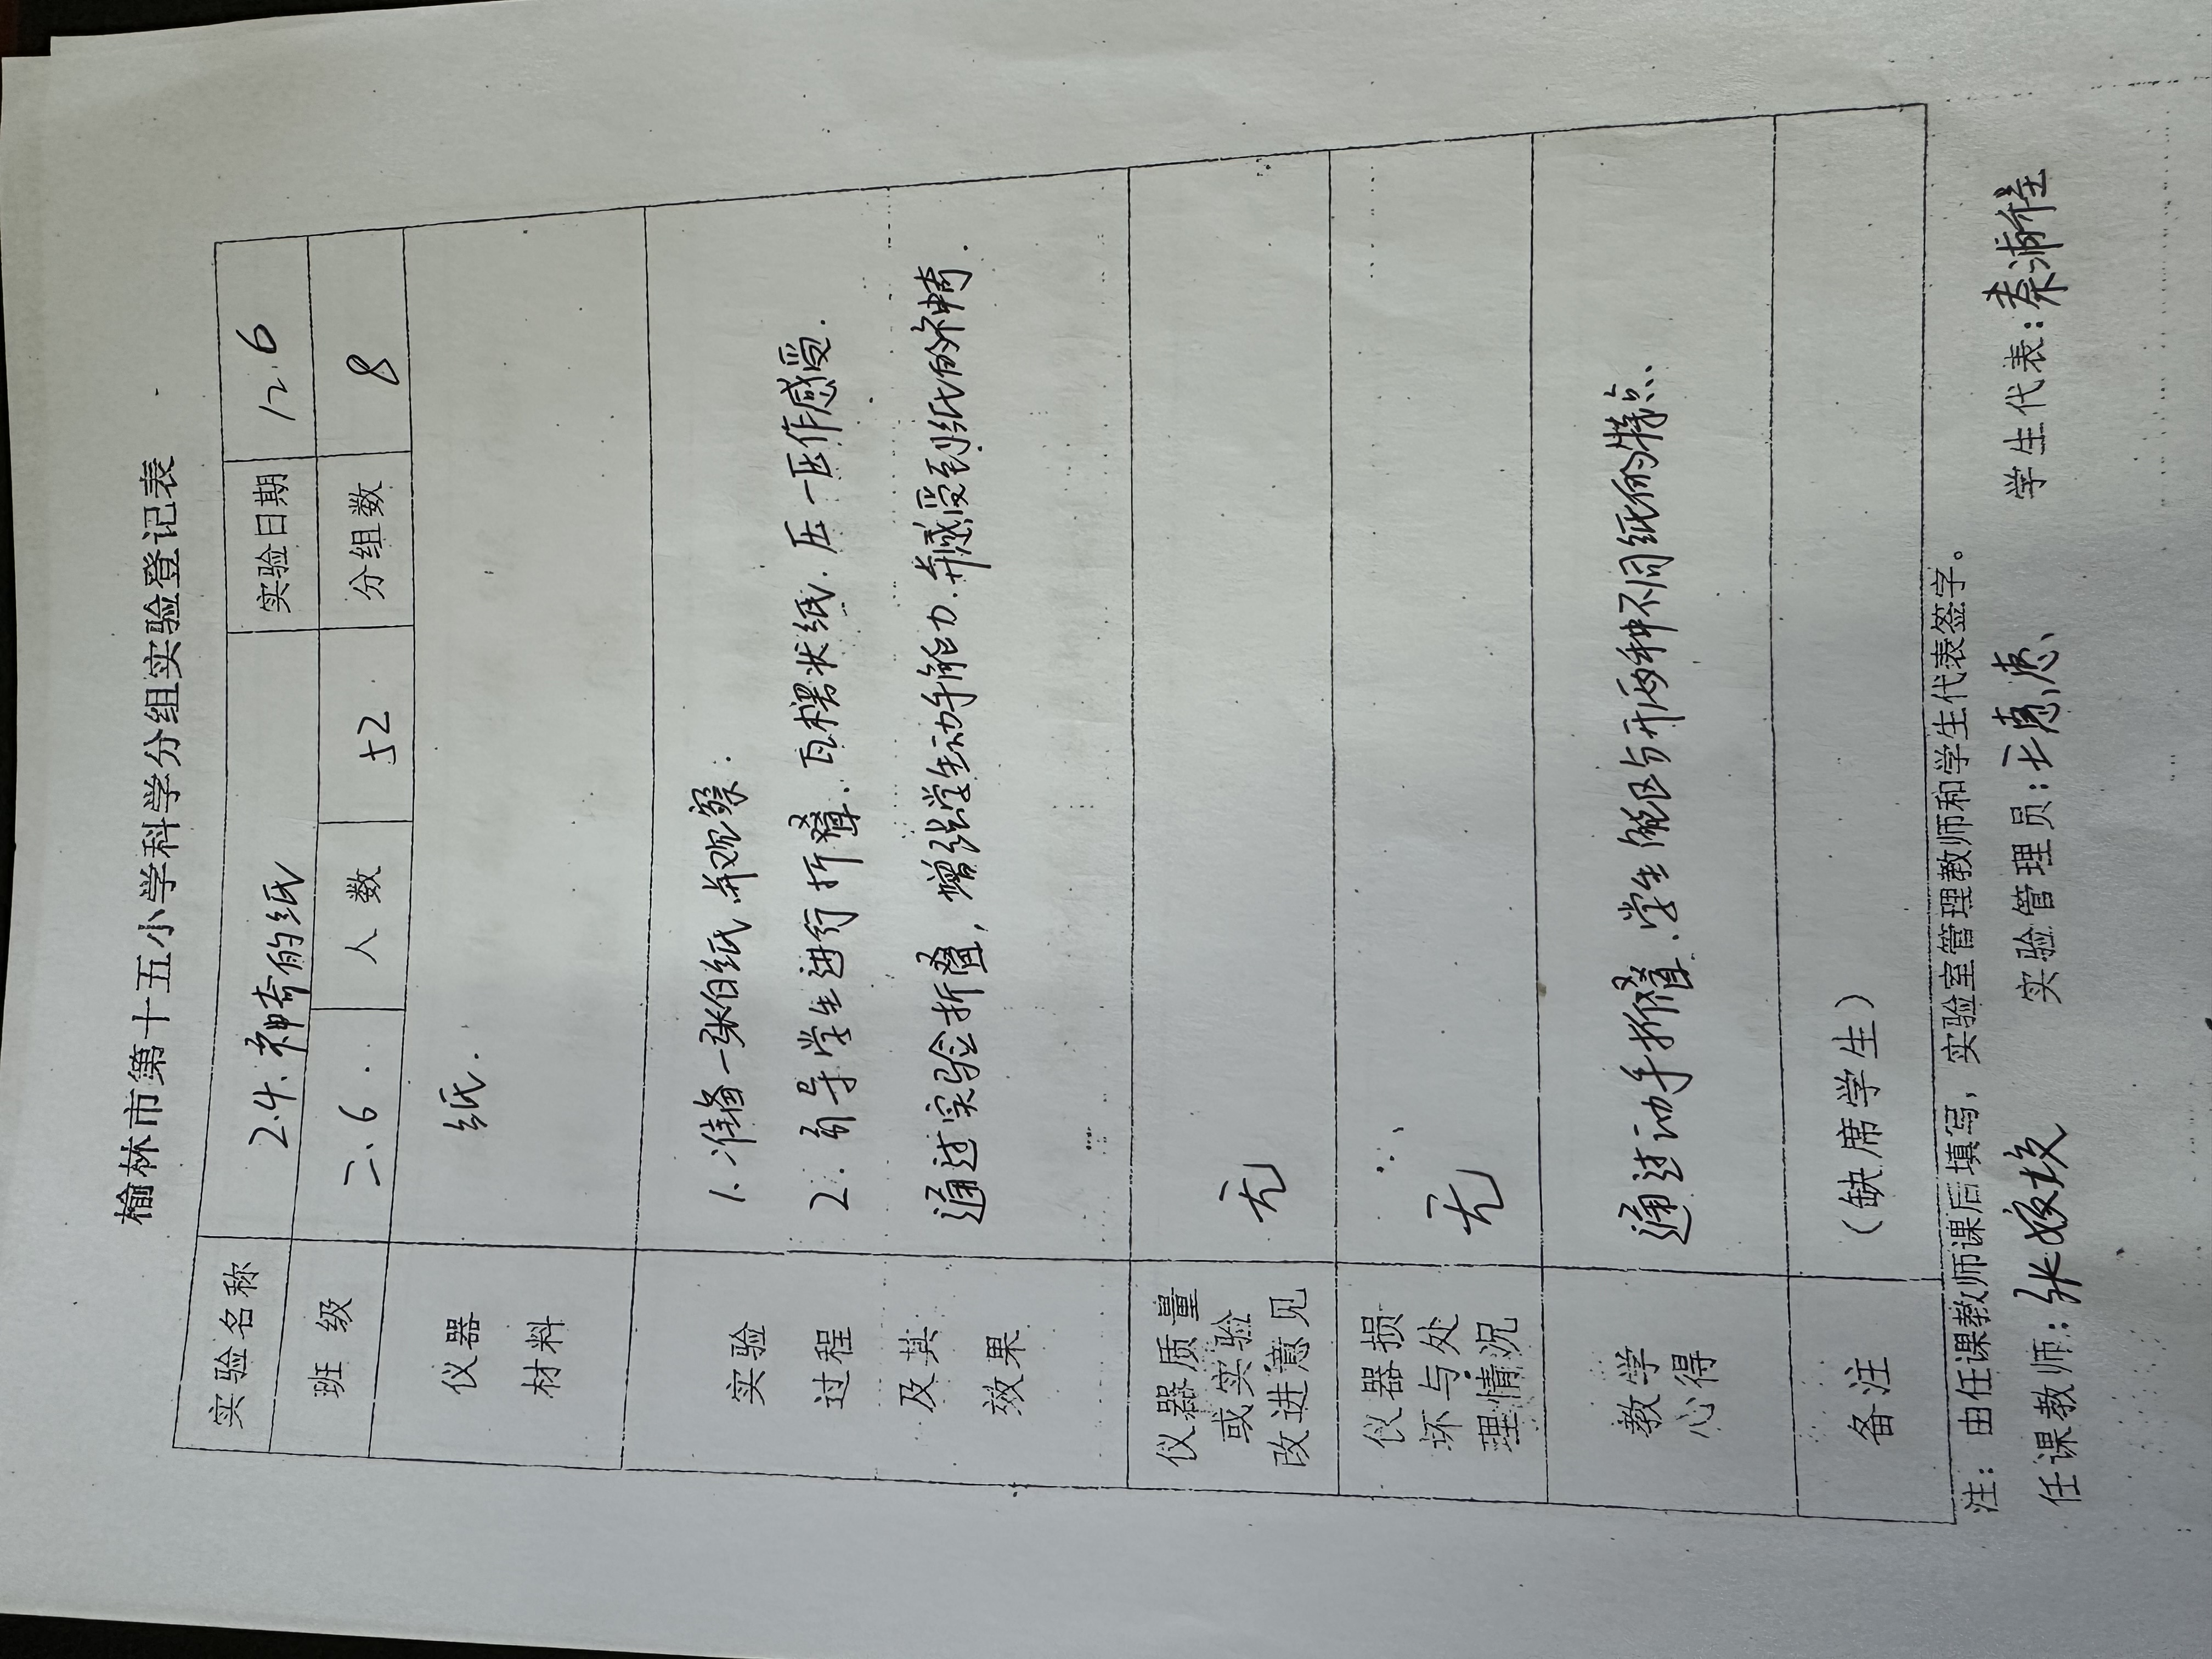 榆林市第十五小学科学分组实验登记表
实验名称 2.4.神奇的纸 实验日期 12.6
班级 二.6. 人数 52 分组数 8
仪器
材料
纸.
实验
过程
及其
效果
1.准备一张白纸.并观察.
2.引导学生进行折叠.瓦楞状纸.压一压作感受.
通过实验折叠,增强学生动手能力.并感受到纸的神奇.
仪器质量
或实验
改进意见
无
仪器损
坏与处
理情况
无
教学
心得
通过动手折叠.学生能区分开两种不同纸的特点.
备注 (缺席学生)
注:由任课教师课后填写,实验室管理教师和学生代表签字。
任课教师:张 实验管理员:王惠惠 学生代表: